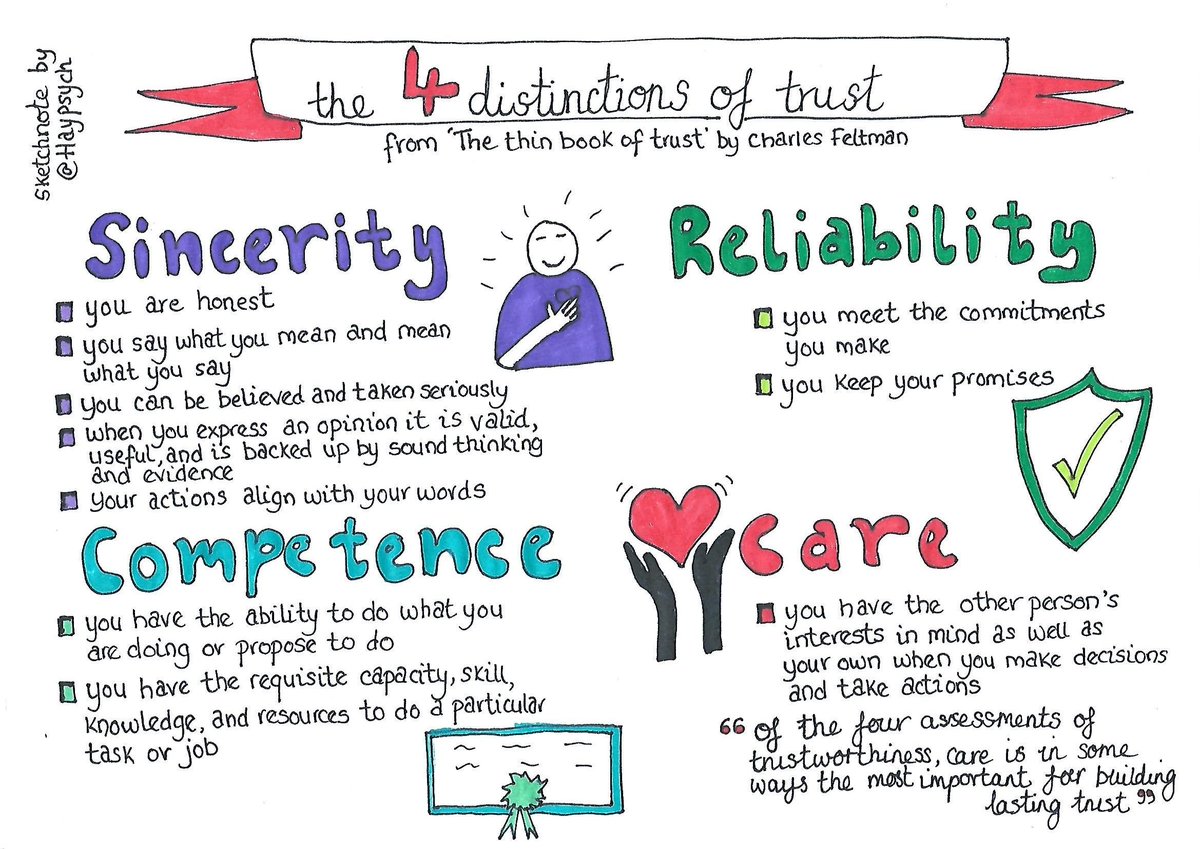 sketchnote by
@Haypsych
the 4 distinctions of trust
from 'The thin book of trust' by Charles Feltman
Sincerity
you are honest
you say what you mean and mean
what you say
you can be believed and taken seriously
when you express an opinion it is valid,
useful, and is backed up by sound thinking
and evidence
your actions align with your words
Reliability
you meet the commitments
you make
you keep your promises
Competence
you have the ability to do what you
are doing or propose to do
you have the requisite capacity, skill,
knowledge, and resources to do a particular
task or job
Care
you have the other person's
interests in mind as well as
your own when you make decisions
and take actions
“of the four assessments of
trustworthiness, care is in some
ways the most important for building
lasting trust”